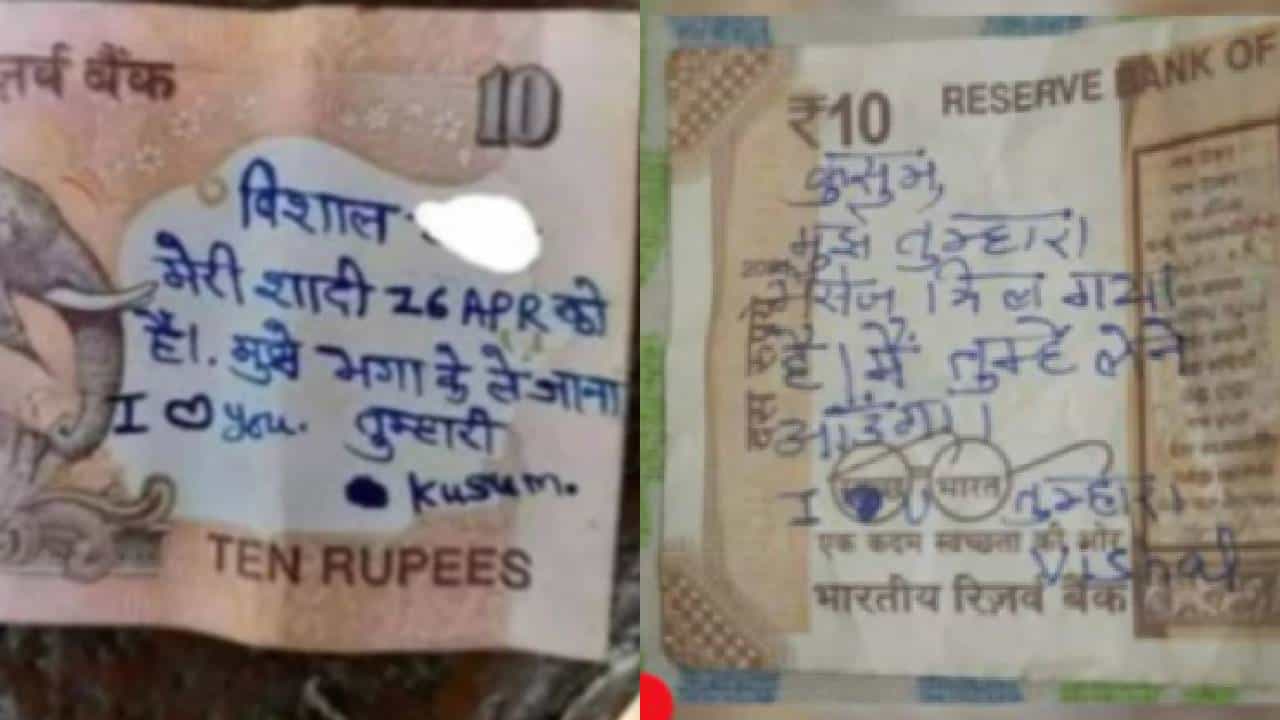 ज़र्व बैंक
10
विशाल
मेरी शादी 26 APR को
है।. मुझे भगा के ले जाना
I ♡ you. तुम्हारी
kusum.
TEN RUPEES
₹10
RESERVE BANK OF
कुसुम,
मुझे तुम्हारा
मैसेज मिल गया
है। मैं तुम्हे लेने
आउंगा।
I U तुम्हारा
Vishal
दस रुपये
भारत
एक कदम स्वच्छता की ओर
भारतीय रिज़र्व बैंक